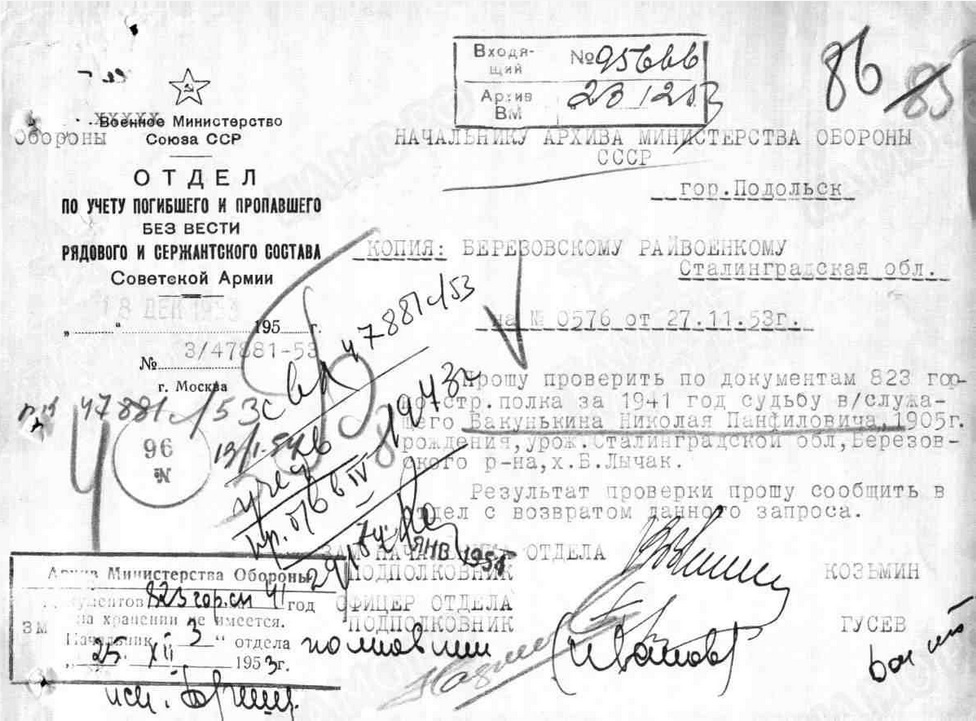 Входя-
щий №95666
Архив
ВМ 23 12 53
86
85
ХХХХХ
Военное Министерство
Обороны Союза ССР
ОТДЕЛ
ПО УЧЕТУ ПОГИБШЕГО И ПРОПАВШЕГО
БЕЗ ВЕСТИ
РЯДОВОГО И СЕРЖАНТСКОГО СОСТАВА
Советской Армии
18 ДЕК 1953
„ “ 195 г.
№ 3/47881-53
г. Москва
47881с/53
96
N
НАЧАЛЬНИКУ АРХИВА МИНИСТЕРСТВА ОБОРОНЫ
СССР
гор.Подольск
КОПИЯ: БЕРЕЗОВСКОМУ РАЙВОЕНКОМУ
Сталинградская обл.
на № 0576 от 27.11.53г.
47881с/53
Прошу проверить по документам 823 гор-
но стр. полка за 1941 год судьбу в/служа-
щего Бакунькина Николая Панфиловича, 1905г.
рождения,урож.Сталинградской обл,Березов-
ского р-на,х.Б.Лычак.
Результат проверки прошу сообщить в
отдел с возвратом данного запроса.
ЗАМ НАЧАЛЬНИКА ОТДЕЛА
ПОДПОЛКОВНИК КОЗЬМИН
ОФИЦЕР ОТДЕЛА
ПОДПОЛКОВНИК ГУСЕВ
Архив Министерства Обороны
документов 823 гор.сп 41 год
на хранении не имеется.
Начальник 3 “ отдела
„ 25 “ XII 1953г.